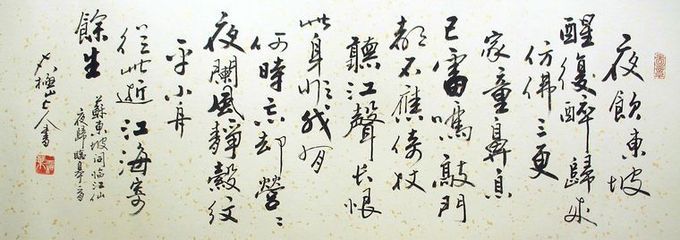 夜飲東坡
醒復醉歸來
仿佛三更
家童鼻息
已雷鳴敲門
都不應倚杖
聽江聲長恨
此身非我有
何時忘却營〻
夜闌風靜縠紋
平小舟
從此逝江海寄
餘生
蘇東坡詞臨江仙
夜歸臨皋
山人書